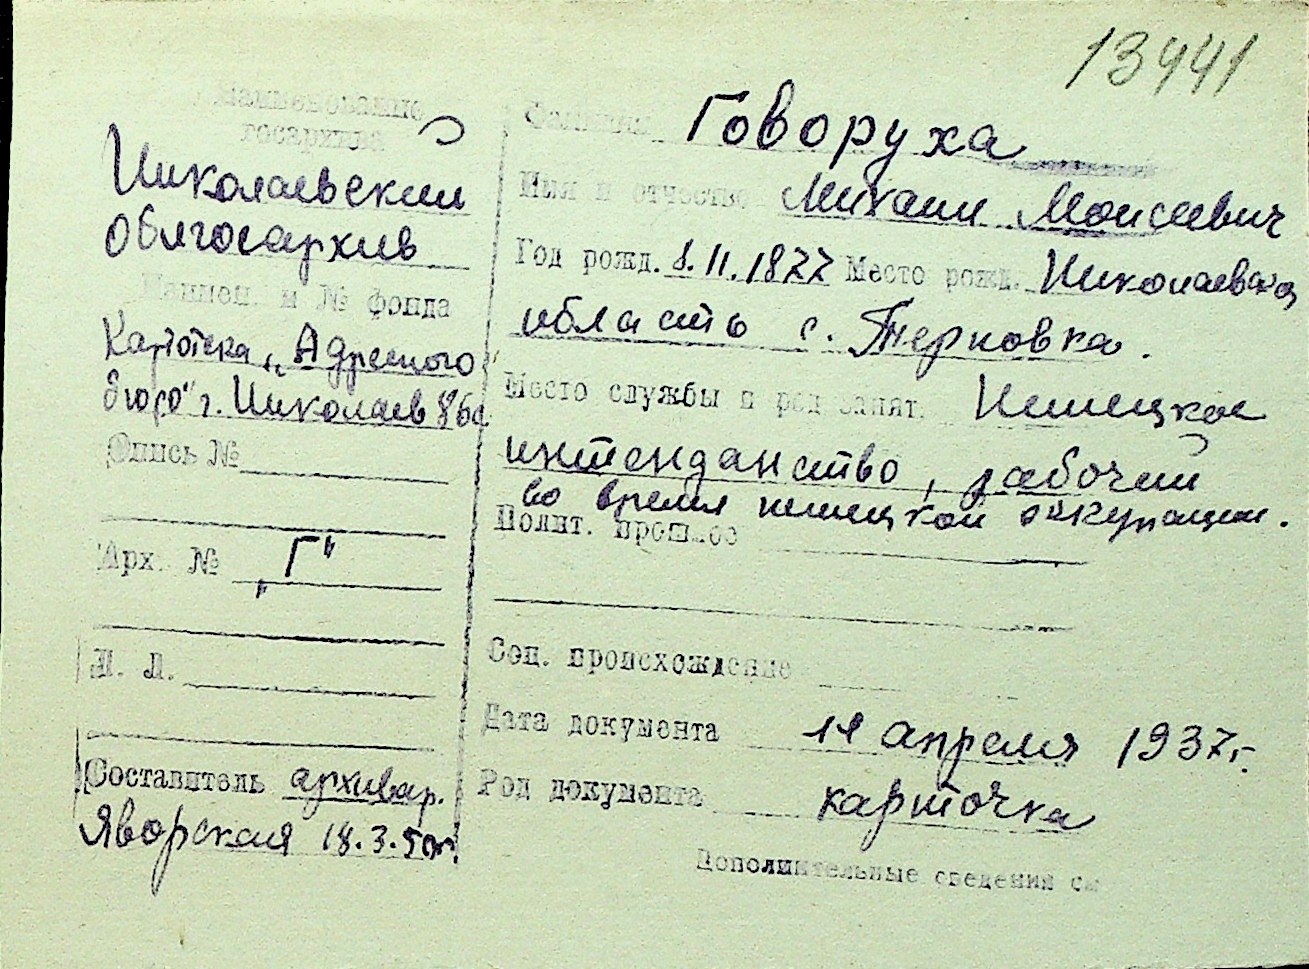 13441
Наименование
госархива
Николаевский
облгосархив
Наимен. и № фонда
Картотека „Адресного
бюро" г. Николаев
Опись №
Арх. № „Г"
Л. Л.
Составитель архивар.
Яворская 18.3.50г.
Фамилия Говоруха
Имя и отчество Михаил Моисеевич
Год рожд. 8.11.1877 Место рожд. Николаевская
область с. Терновка.
Место службы и род занят. Немецкое
интендантство, рабочий
во время немецкой оккупации.
Полит. прошлое
Соц. происхождение
Дата документа апреля 1937г.
Род документа карточка
Дополнительные сведения см